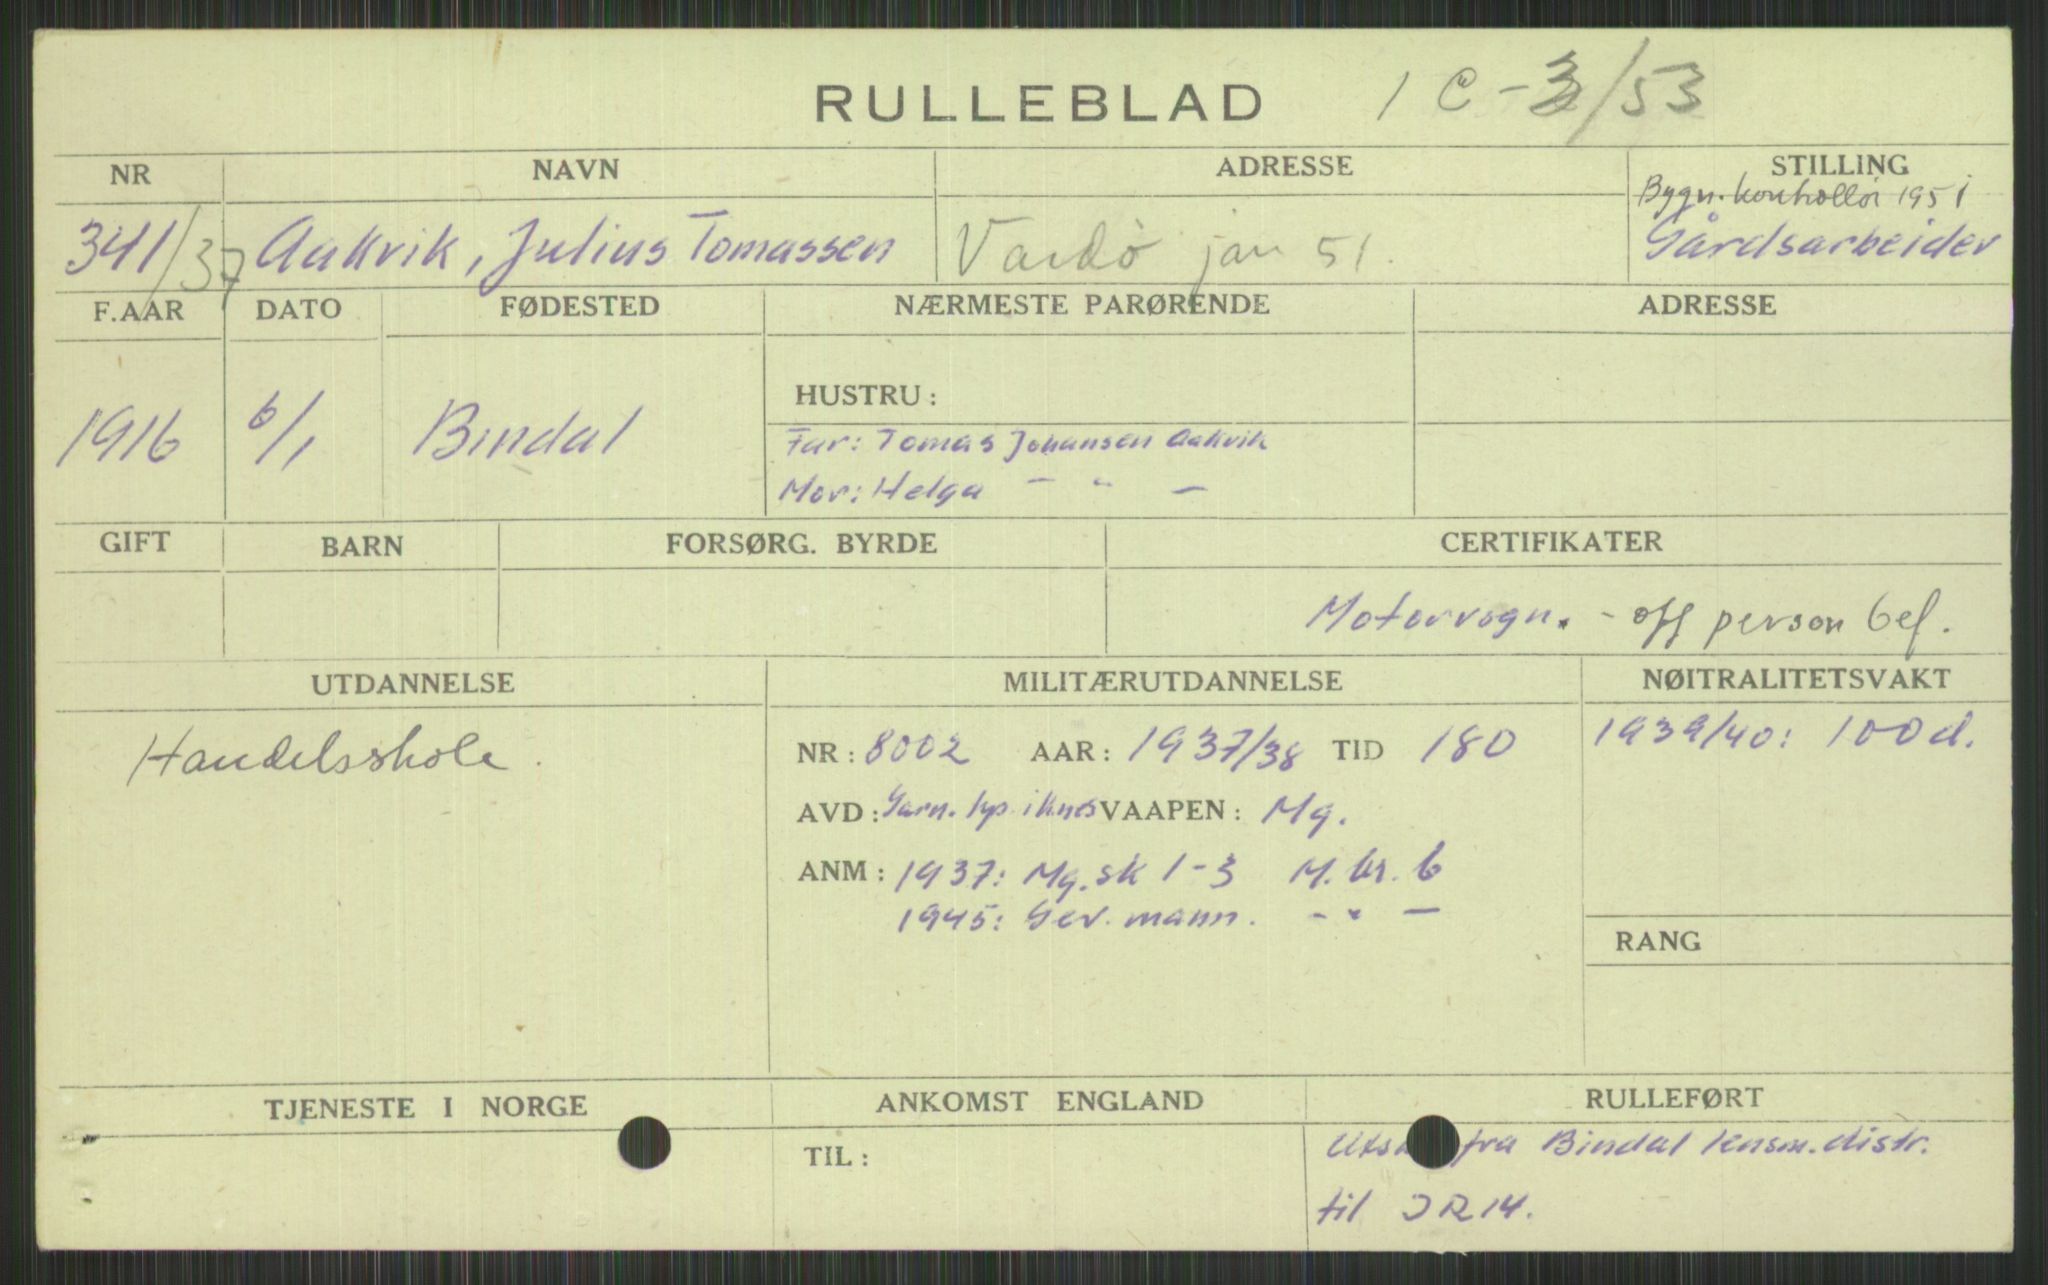 RULLEBLAD 1 C - 3/53
NR NAVN ADRESSE STILLING
Bygn. kontrollør 1951
341/37 Aakvik, Julius Tomassen Vardø jan 51. Gårdsarbeider
F.AAR DATO FØDESTED NÆRMESTE PARØRENDE ADRESSE
HUSTRU:
1916 6/1 Bindal Far: Tomas Johansen Aakvik
Mor: Helga - " -
GIFT BARN FORSØRG. BYRDE CERTIFIKATER
Motorvogn. - off person bef.
UTDANNELSE MILITÆRUTDANNELSE NØITRALITETSVAKT
Handelsskole. NR: 8002 AAR: 1937/38 TID 180 1939/40: 100 d.
AVD: Garn. kp. i Knes VAAPEN: Mg.
ANM: 1937: Mg. sk 1-3 M. kr. 6
1945: Gev. mann. - " -
RANG
TJENESTE I NORGE ANKOMST ENGLAND RULLEFØRT
TIL: fra Bindal lensm. distr.
til IR 14.